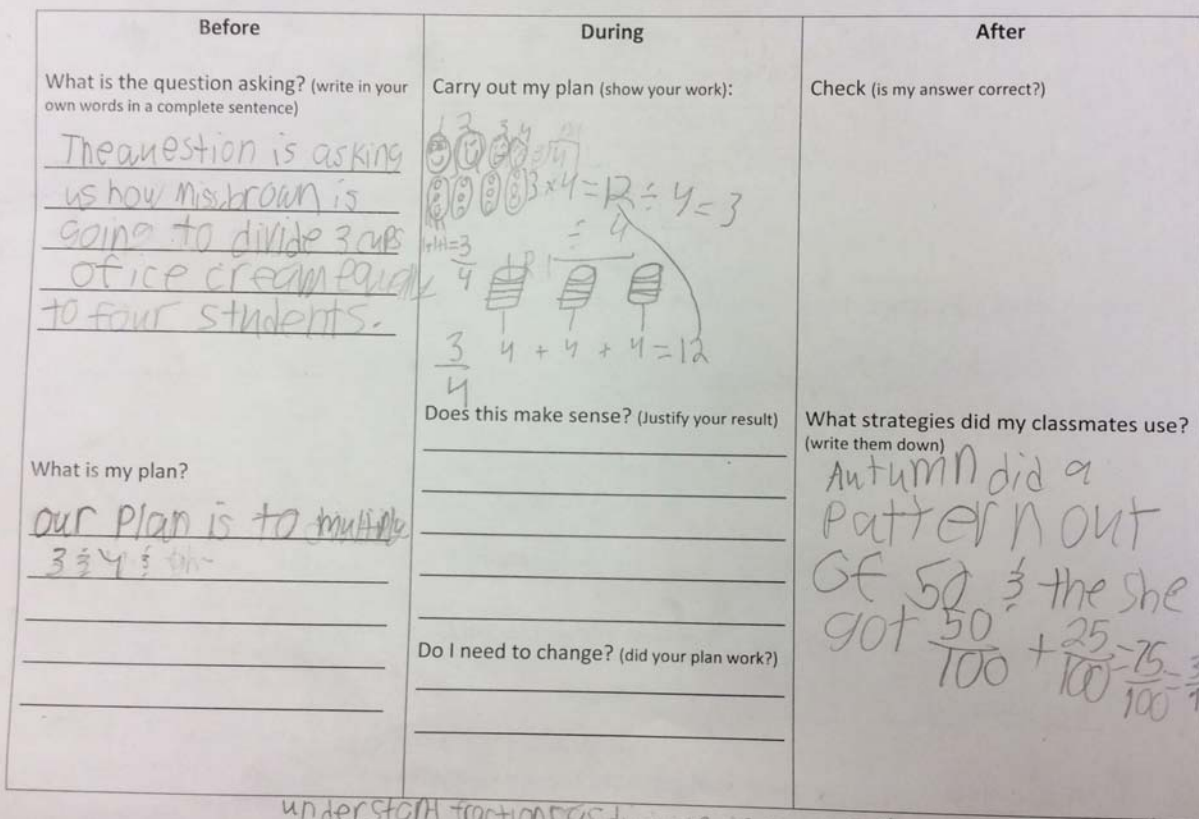 Before
What is the question asking? (write in your
own words in a complete sentence)
The question is asking
us how Miss brown is
going to divide 3 cups
of ice cream equally
to four students.
What is my plan?
our Plan is to multiply
3 & 4 &
During
Carry out my plan (show your work):
1 2 3 4
3 x 4 = 12 ÷ 4 = 3
÷ 4
1+1+1=3
4
3
4
4 + 4 + 4 = 12
Does this make sense? (Justify your result)
Do I need to change? (did your plan work?)
After
Check (is my answer correct?)
What strategies did my classmates use?
(write them down)
Autumn did a
Pattern out
Of 50 & the she
got 50/100 + 25/100 = 75/100 =
understand fractions